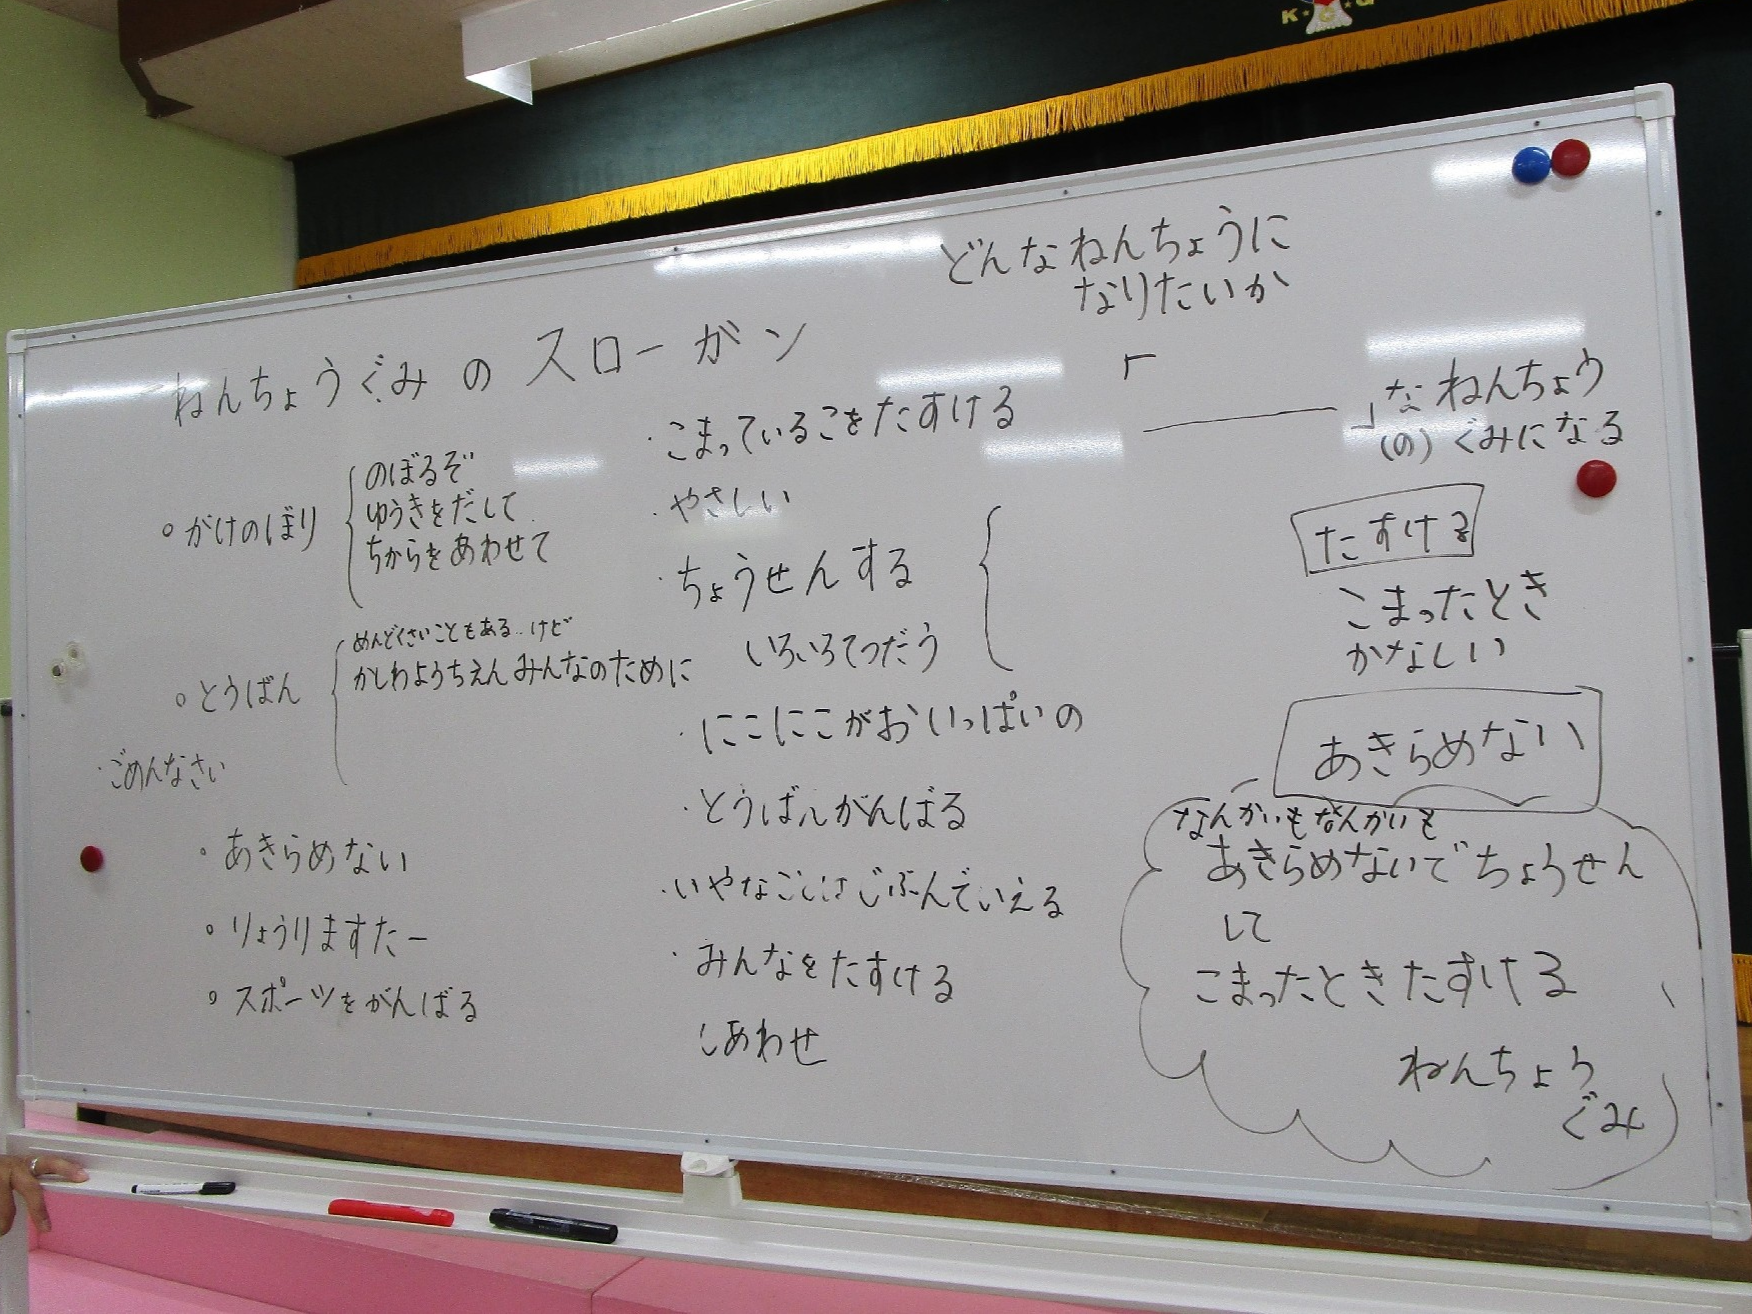 K・G
どんなねんちょうに
なりたいか
ねんちょうぐみ の スローガン
「 ――― 」な ねんちょう
(の) ぐみになる
。がけのぼり
のぼるぞ
ゆうきをだして
ちからをあわせて
。とうばん
めんどくさいこともある‥けど
かしわようちえんみんなのために
・ごめんなさい
・あきらめない
。りょうりますたー
。スポーツをがんばる
・こまっているこをたすける
・やさしい
・ちょうせんする
いろいろてつだう
・にこにこがおいっぱいの
・とうばんがんばる
・いやなことはじぶんでいえる
・みんなをたすける
しあわせ
たすける
こまったとき
かなしい
あきらめない
なんかいもなんかいも
あきらめないでちょうせん
して
こまったときたすける
ねんちょう
ぐみ